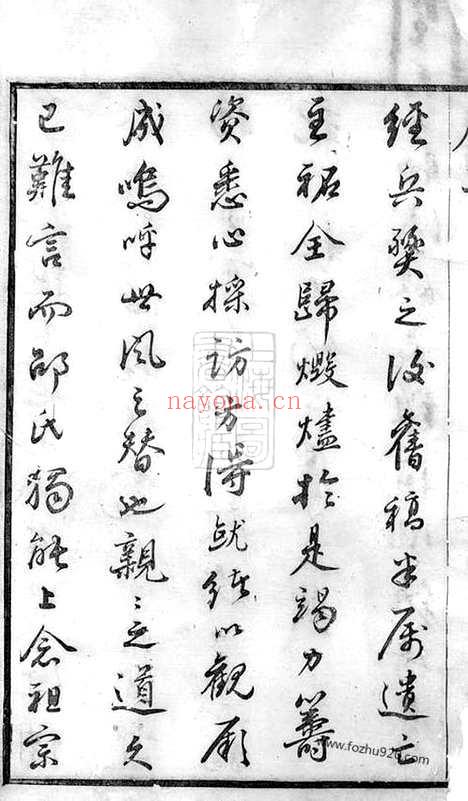 經兵燹之後舊稿半属遺亡
主祏全歸燬燼於是竭力籌
資悉心採訪方得就緒以觀厥
成嗚呼世风之替也親〻之道久
已難言而邵氏獨能上念祖宗
nayona.cn
www.fozhu920.com